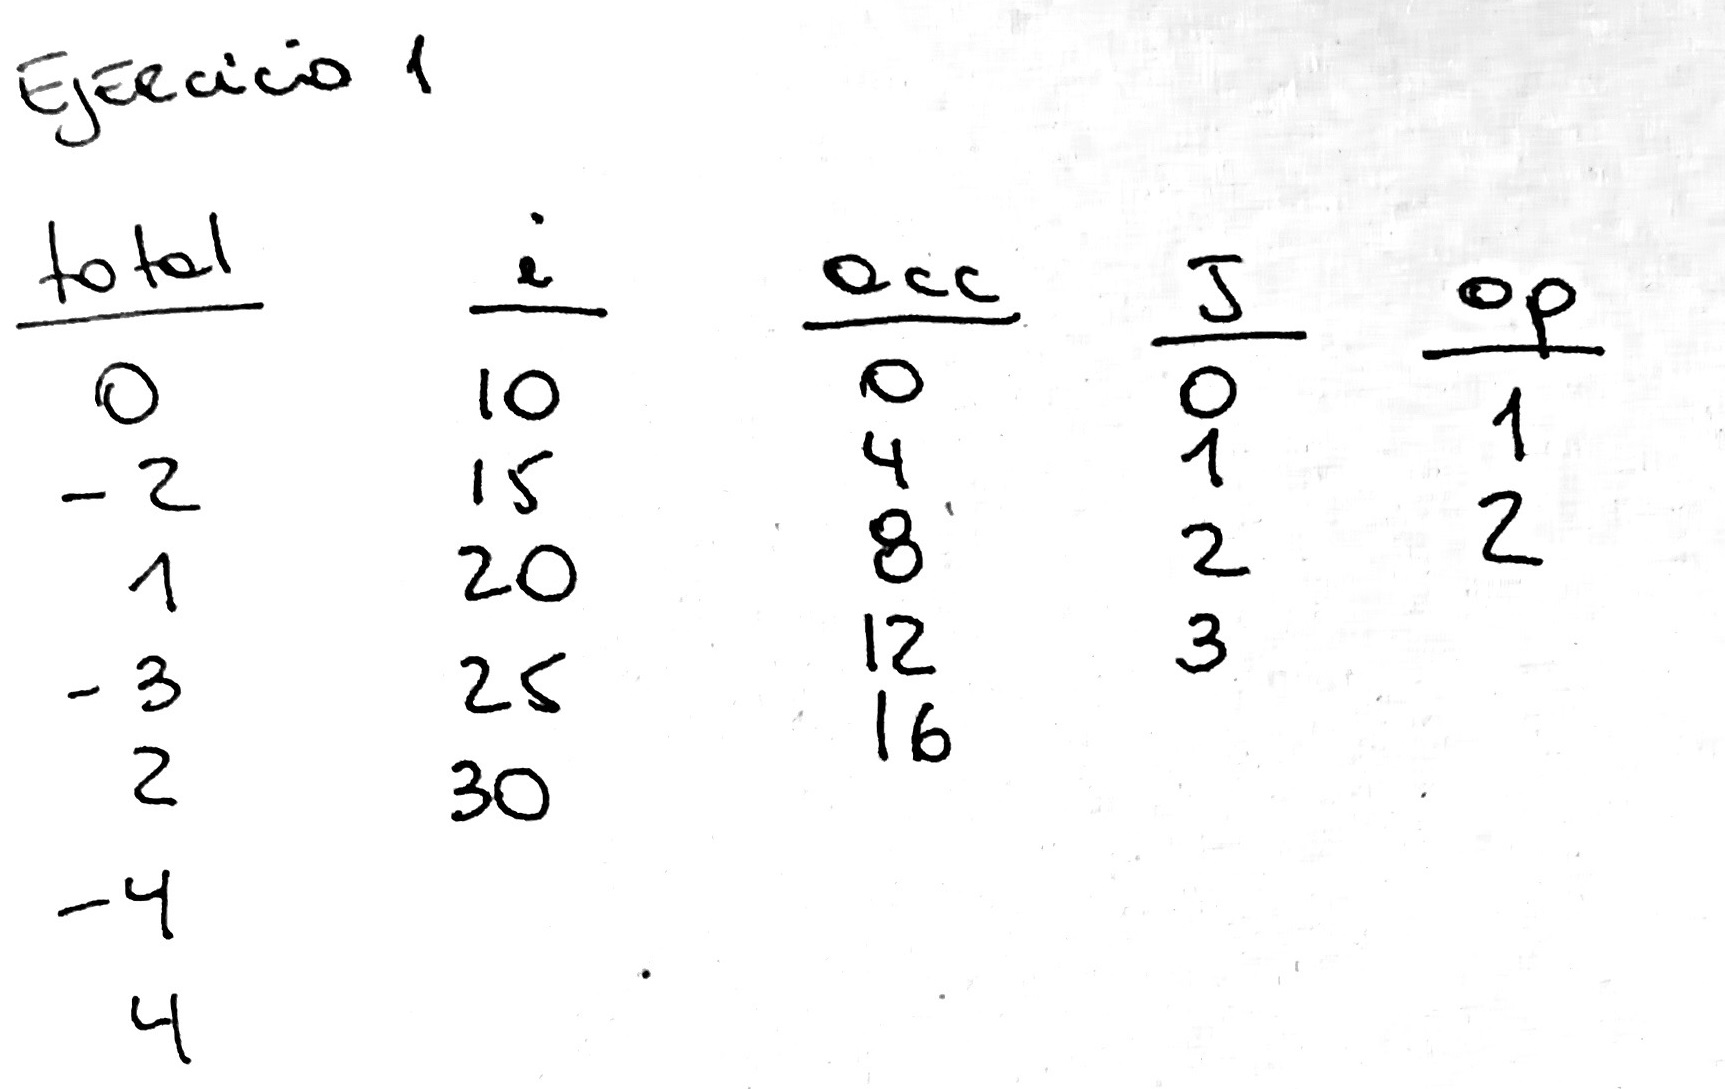 Ejercicio 1
total i acc J op
0 10 0 0 1
-2 15 4 1 2
1 20 8 2
-3 25 12 3
2 30 16
-4
4